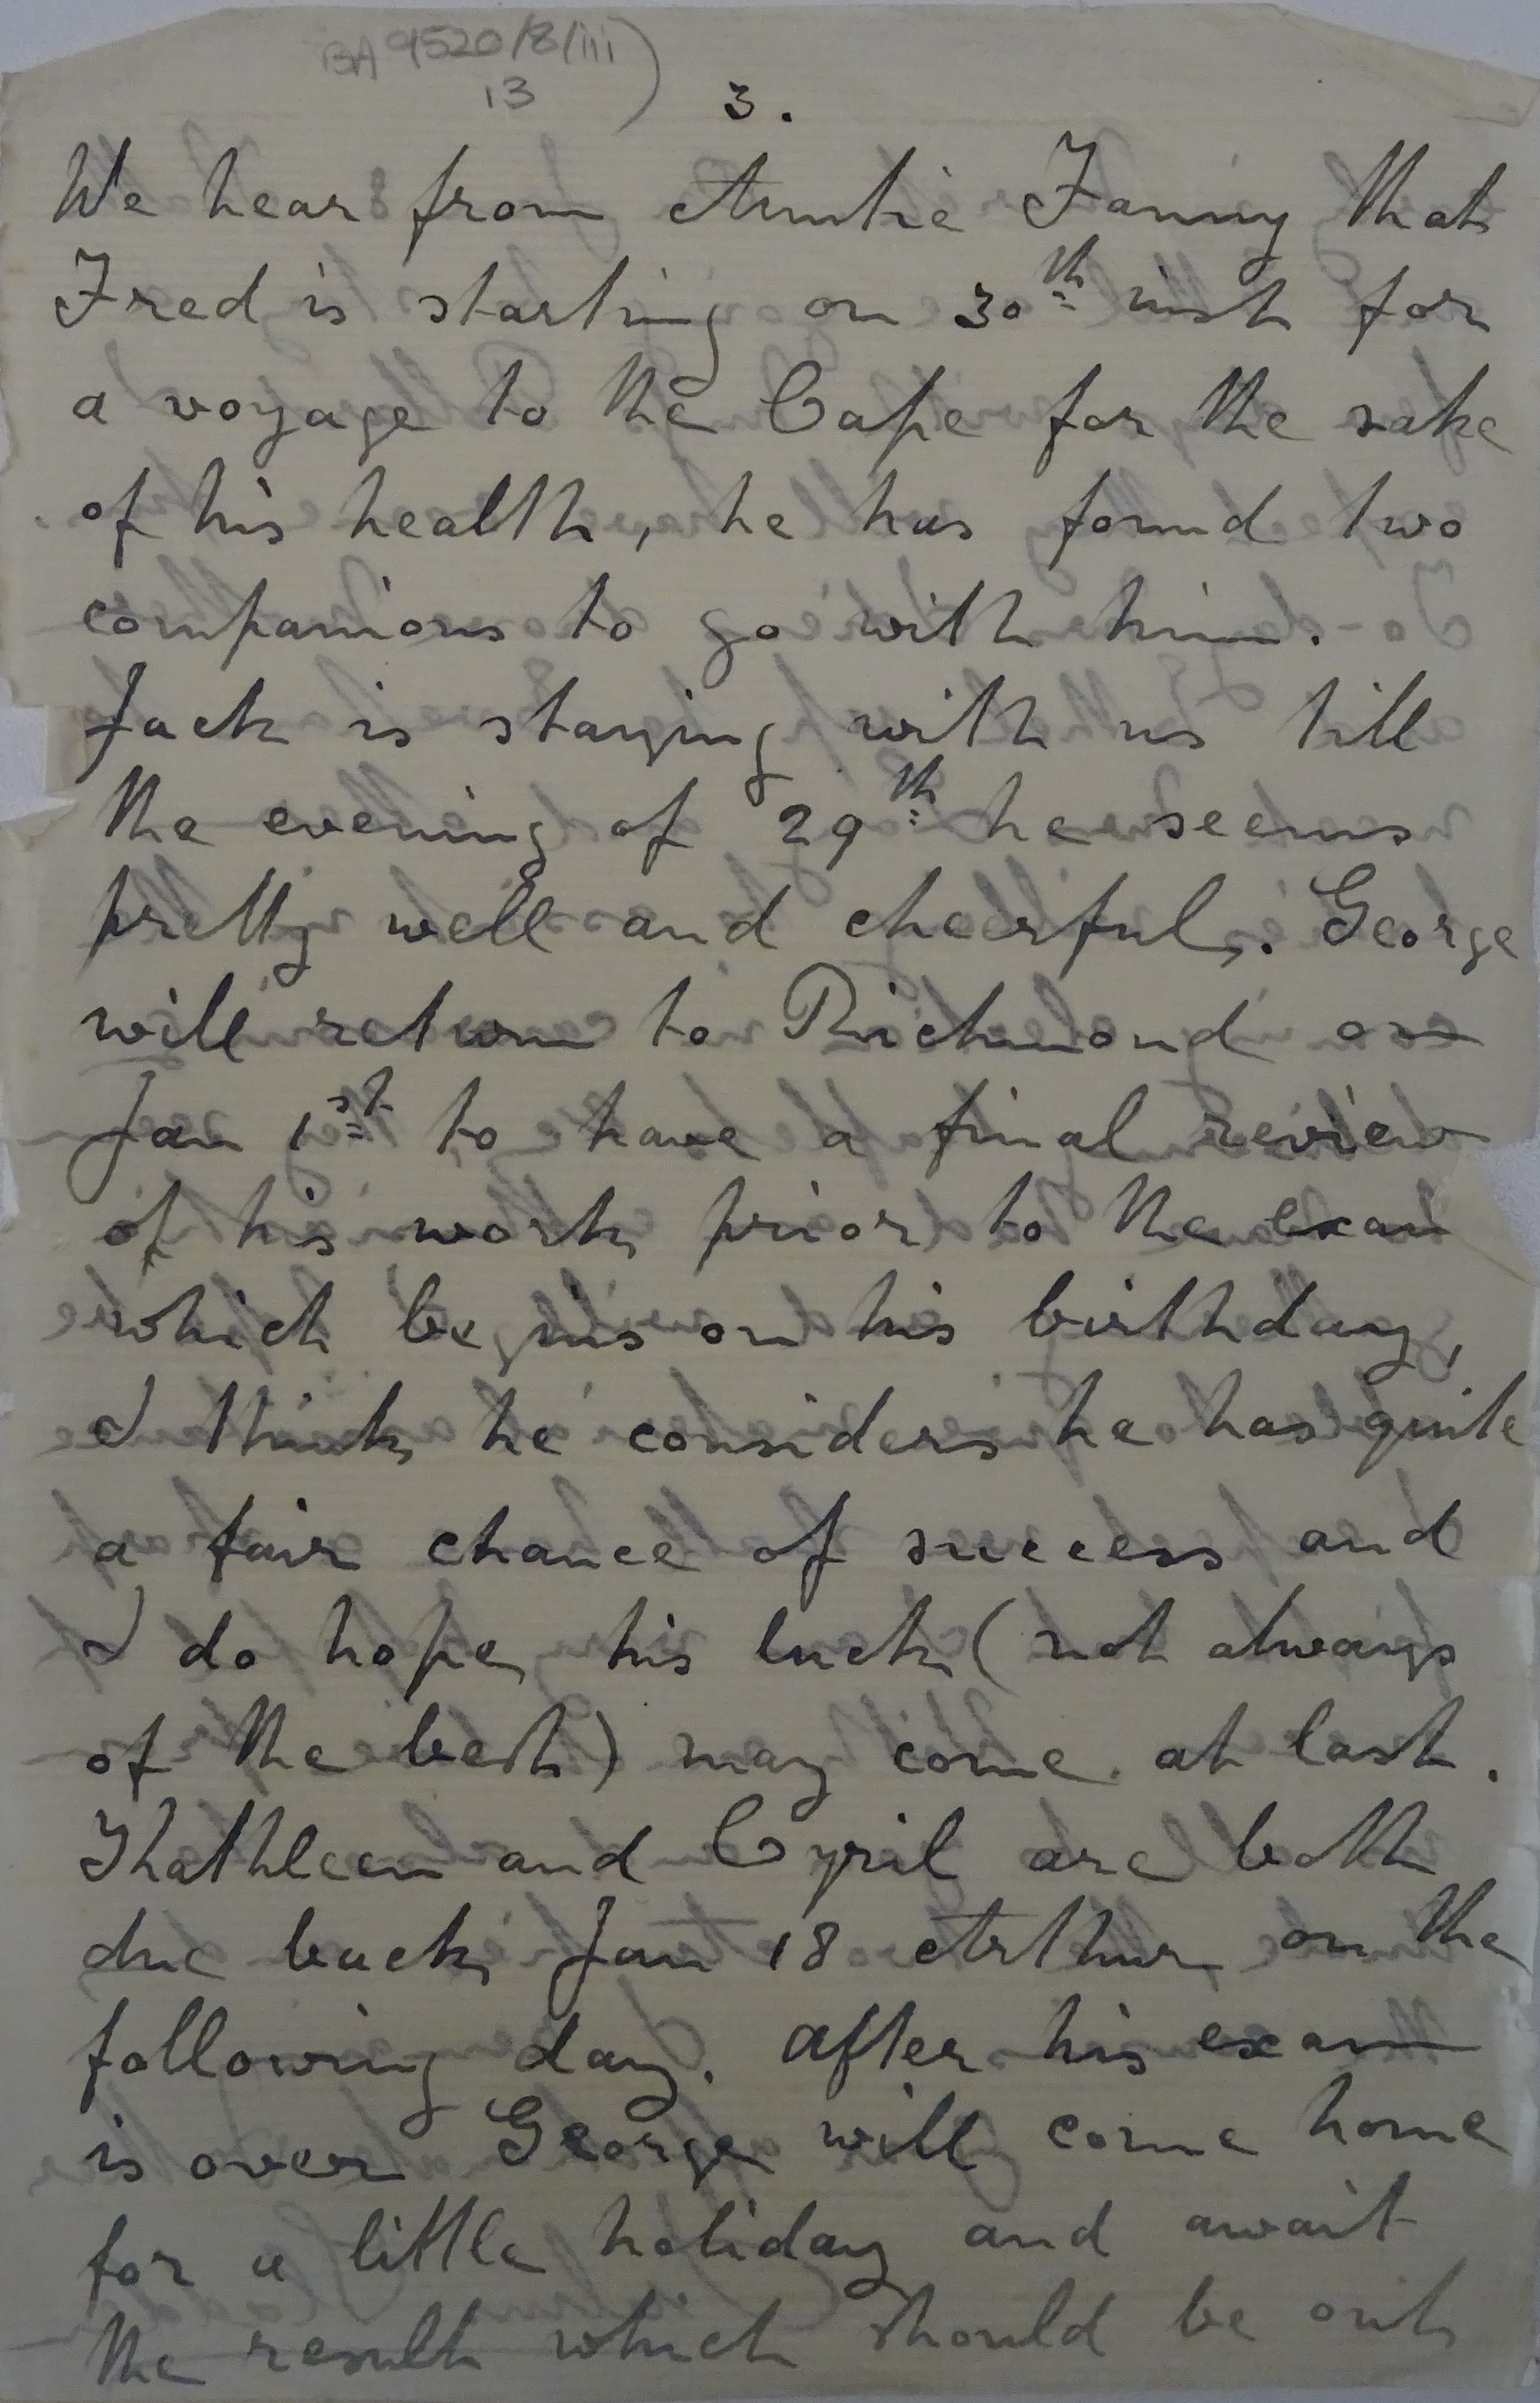 BA 9520/8/iii)
13
3.
We hear from Auntie Fanny that
Fred is starting on 30th inst for
a voyage to the Cape for the sake
of his health, he has found two
companions to go with him.
Jack is staying with us till
the evening of 29th he seems
pretty well and cheerful,. George
will return to Richmond on
Jan 1st to have a final review
of his work prior to the exam
which begins on his birthday,
I think he considers he has quite
a fair chance of success and
I do hope his luck (not always
of the best) may come at last.
Kathleen and Cyril are both
due back Jan 18 Arthur on the
following day. After his exam
is over George will come home
for a little holiday and await
the result which should be out